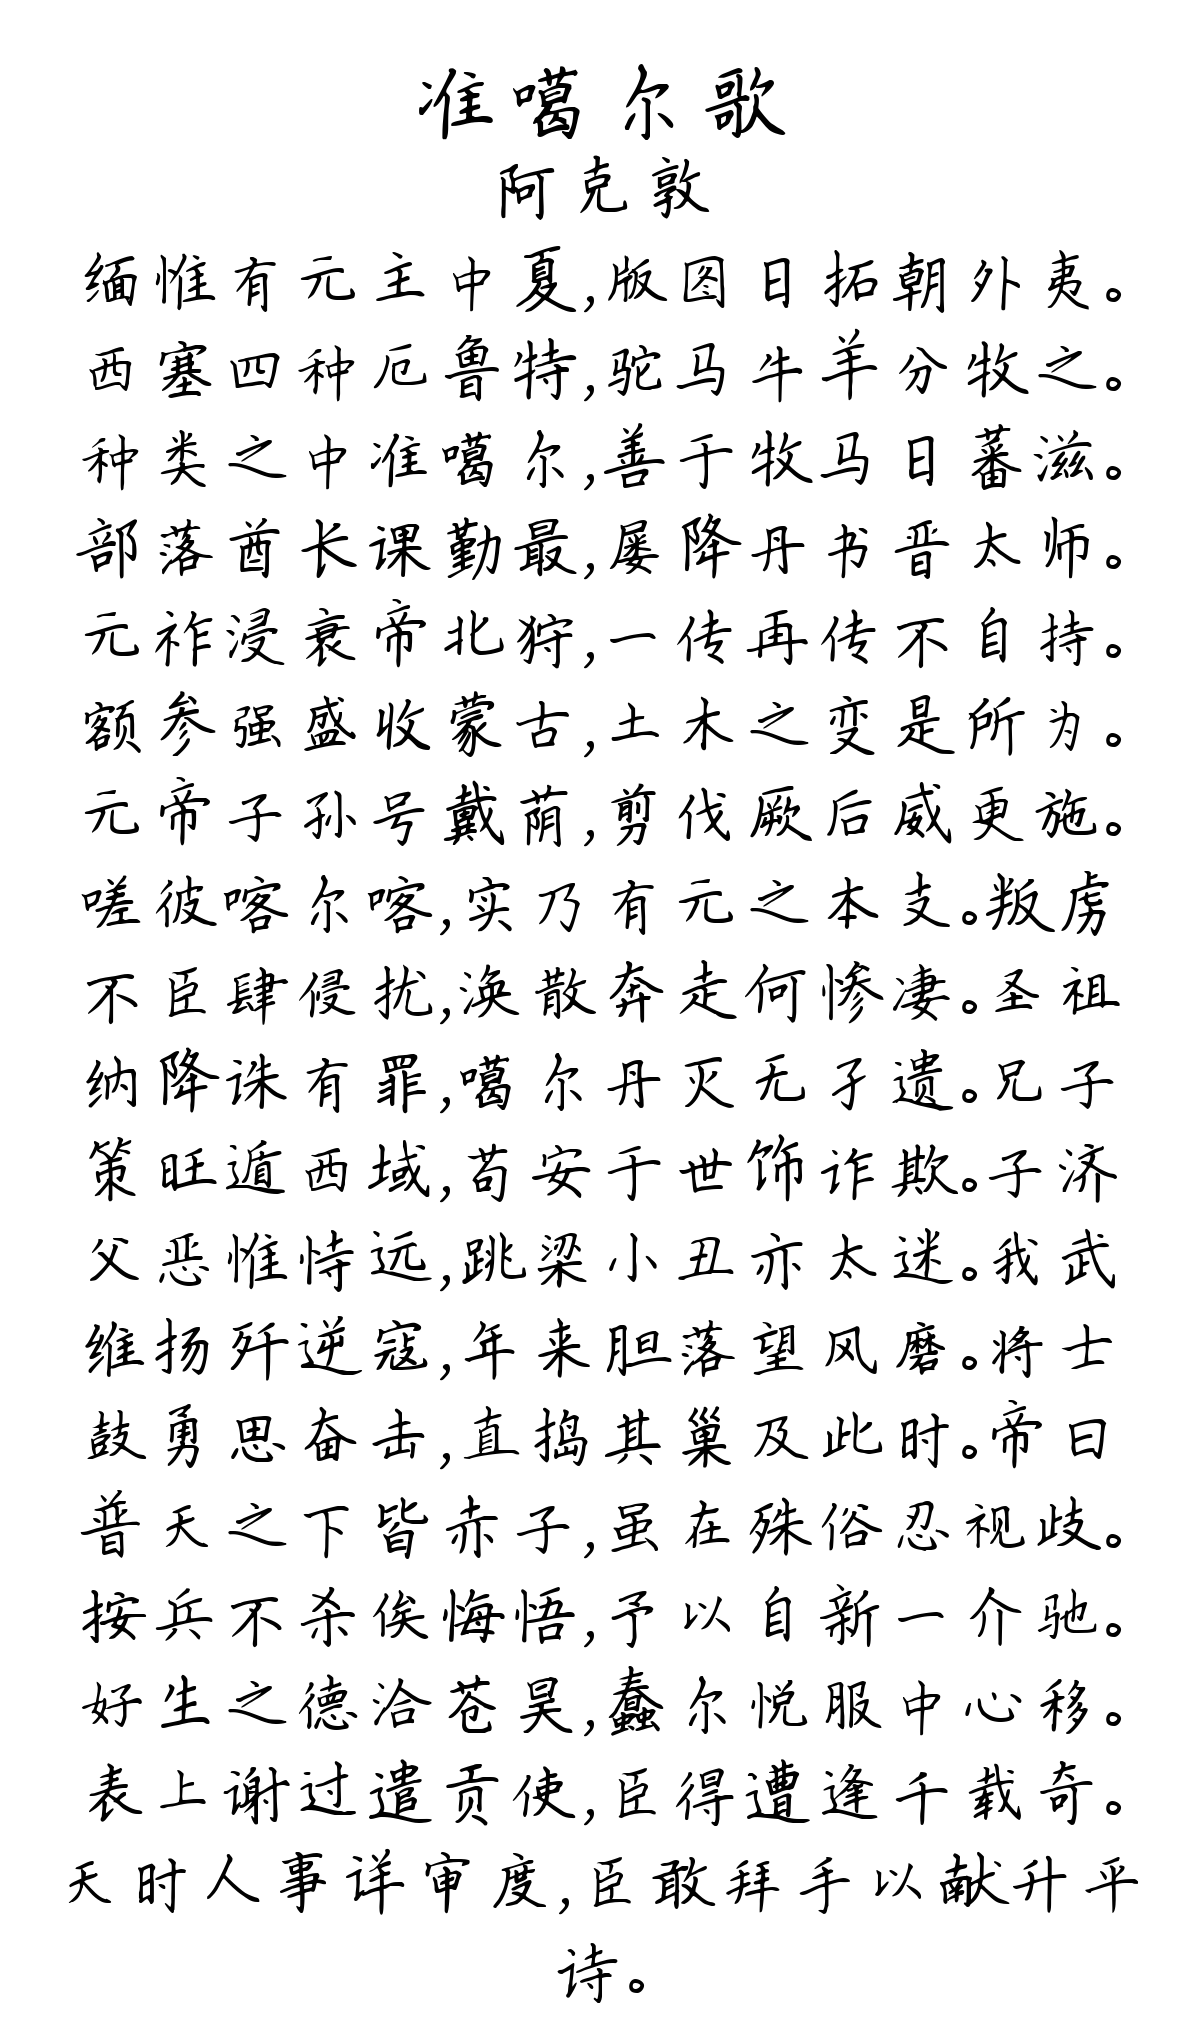 准噶尔歌
阿克敦
缅惟有元主中夏,版图日拓朝外夷。
西塞四种厄鲁特,驼马牛羊分牧之。
种类之中准噶尔,善于牧马日蕃滋。
部落酋长课勤最,屡降丹书晋太师。
元祚浸衰帝北狩,一传再传不自持。
额参强盛收蒙古,土木之变是所为。
元帝子孙号戴荫,剪伐厥后威更施。
嗟彼喀尔喀,实乃有元之本支。叛虏
不臣肆侵扰,涣散奔走何惨凄。圣祖
纳降诛有罪,噶尔丹灭无孑遗。兄子
策旺遁西域,苟安于世饰诈欺。子济
父恶惟恃远,跳梁小丑亦太迷。我武
维扬歼逆寇,年来胆落望风磨。将士
鼓勇思奋击,直捣其巢及此时。帝曰
普天之下皆赤子,虽在殊俗忍视歧。
按兵不杀俟悔悟,予以自新一介驰。
好生之德洽苍昊,蠢尔悦服中心移。
表上谢过遣贡使,臣得遭逢千载奇。
天时人事详审度,臣敢拜手以献升平
诗。